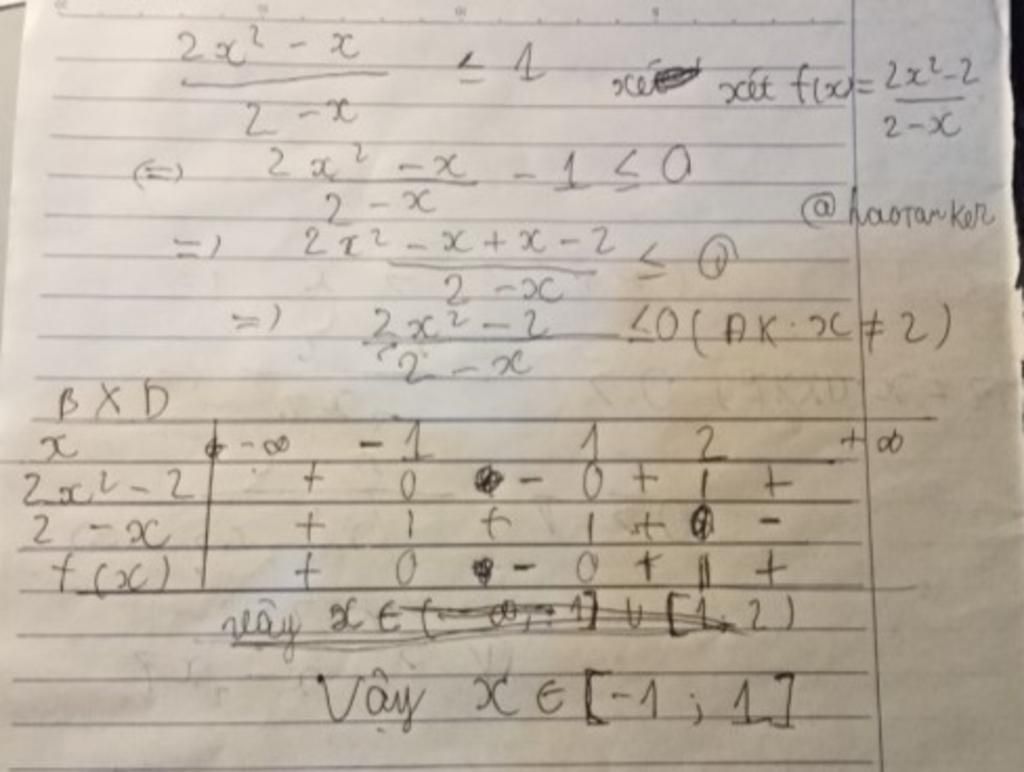 2x² - x / 2 - x ≤ 1 xét f(x) = 2x² - 2 / 2 - x
(=) 2x² - x / 2 - x - 1 ≤ 0
@haotanker
=) 2x² - x + x - 2 / 2 - x ≤ 0
=) 2x² - 2 / 2 - x ≤ 0 (ĐK. x ≠ 2)
B X D
x -∞ -1 1 2 +∞
2x² - 2 + 0 - 0 + | +
2 - x + | + | + 0 -
f(x) + 0 - 0 + || +
vậy x ∈ (-∞; -1] ∪ [1, 2)
Vậy x ∈ [-1 ; 1]